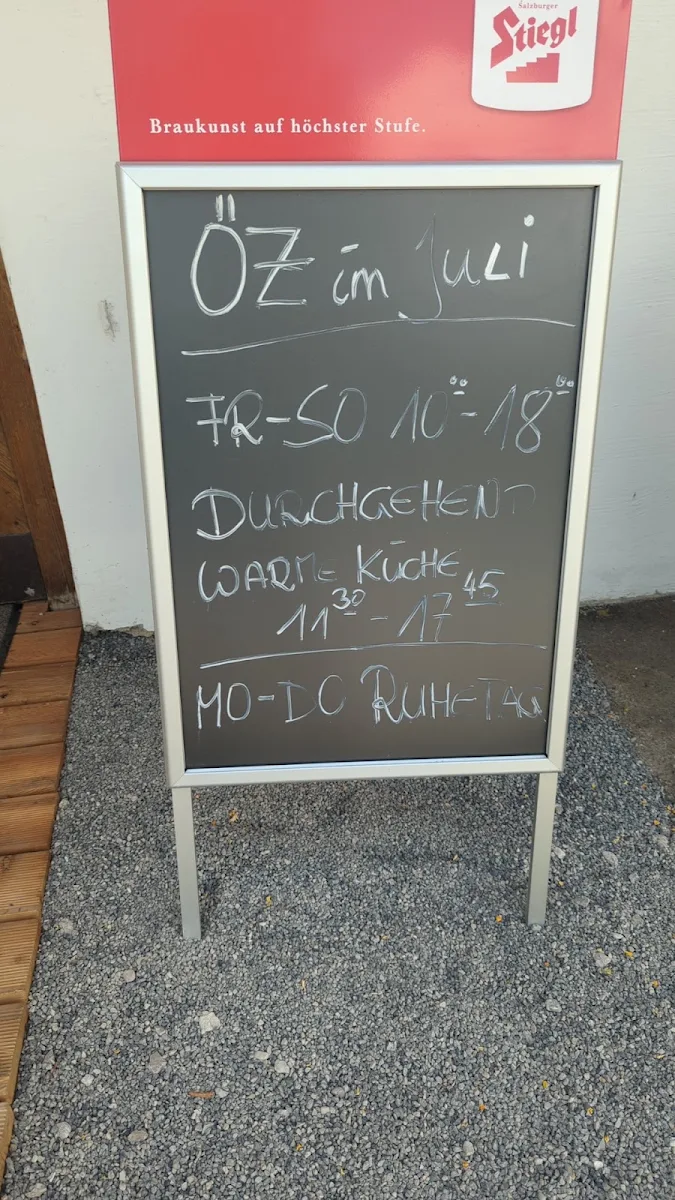 Salzburger
Stiegl
Braukunst auf höchster Stufe.
ÖZ im Juli
FR-SO 10⁰⁰-18⁰⁰
DURCHGEHEND
WARME KÜCHE
11³⁰-17⁴⁵
MO-DO RUHETAG